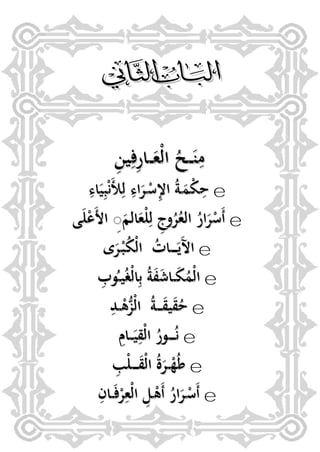 البَابُ الثَّانِي
مِنَــحُ الْعَــارِفِينِ
حِكْمَةُ الإِسْرَاءِ لِلْأَنْبِيَاءِ
أَسْرَارُ العُرُوجِ لِلْعَالَمِ الأَعْلَى
الآيَــاتُ الْكُبْرَى
الْمُكَـاشَفَةُ بِالْغُيُـوبِ
حُقَـيـقَــةُ الْزُّهْـدِ
نُــورُ الْقِيَـامِ
طُهْرَةُ الْقَــلْـبِ
أَسْرَارُ أَهْـلِ الْعِرْفَـانِ